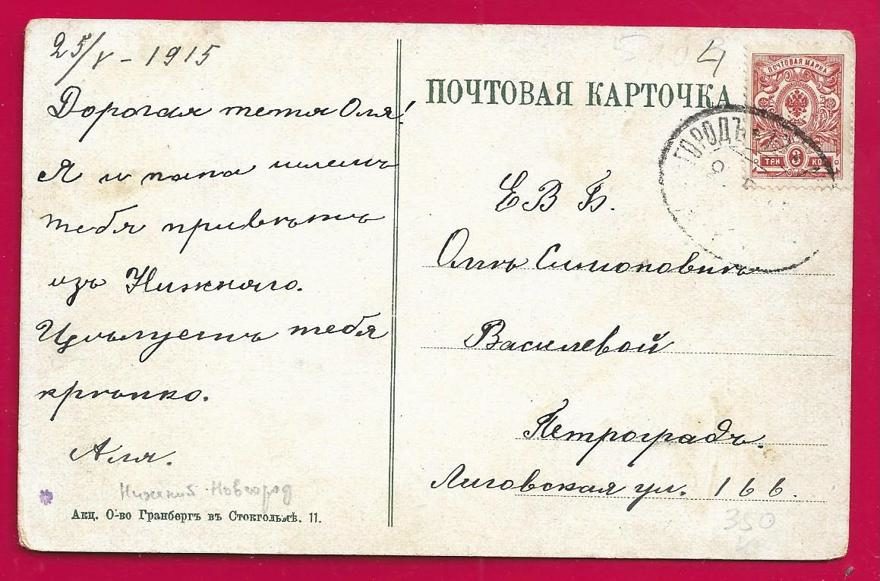 25/V - 1915
Дорогая тетя Оля!
Я и папа шлемъ
тебя привѣтъ
изъ Нижняго.
Цѣлуетъ тебя
крѣпко.
Аля.
Нижний-Новгород
Акц. О-во Гранбергъ въ Стокгольмѣ. 11.
4
ПОЧТОВАЯ КАРТОЧКА
ПОЧТОВАЯ МАРКА
3
ТРИ КОП
ГОРОДЪ
Е В Б.
Ольгѣ Симоновнѣ
Василевой
Петроградъ.
Лиговская ул. 166.
350